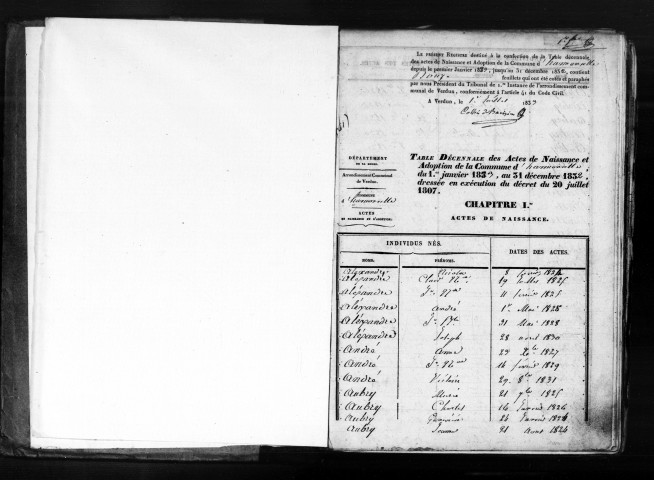 Le présent Registre destiné à la confection de la Table décennale
des actes de Naissance et Adoption de la Commune d'hamonville
depuis le premier Janvier 1823, jusqu'au 31 décembre 1832, contient
feuillets qui ont été cotés et paraphés
par nous Président du Tribunal de 1.re Instance de l'arrondissement com-
munal de Verdun, conformément à l'article 41 du Code Civil.
A Verdun, le 1er Juillet 1833
DÉPARTEMENT
DE LA MEUSE.
Arrondissement Communal
de Verdun.
Commune
d'hamonville
ACTES
DE NAISSANCE ET D'ADOPTION.
TABLE DÉCENNALE des Actes de Naissance et
Adoption de la Commune d'hamonville
du 1.er janvier 1823, au 31 décembre 1832,
dressée en exécution du décret du 20 juillet
1807.
CHAPITRE I.er
ACTES DE NAISSANCE.
INDIVIDUS NÉS.
DATES DES ACTES.
NOMS.
PRÉNOMS.
Alexandre Nicolas 8 1824
Alexandre 19 1825
Alexandre 11 février 1825
Alexandre André 1er Mai 1828
Alexandre 31 Mai 1828
Alexandre Joseph 28 avril 1830
André Anne 23 1827
André 16 février 1829
André 29 8bre 1831
Aubry Marie 21 7bre 1825
Aubry Charles 16 Janvier 1826
Aubry 26 Janvier
Aubry Jeanne 21 Aout 1824